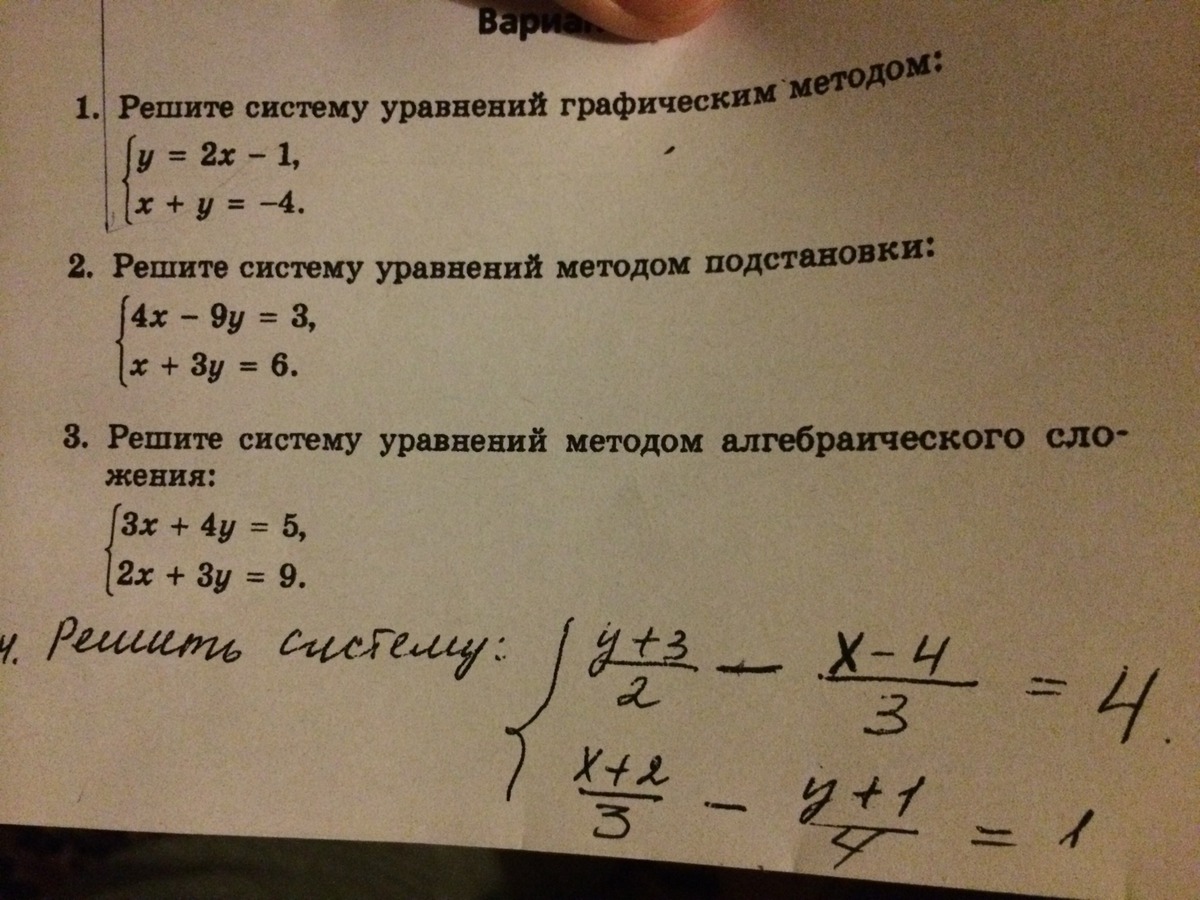 1. Решите систему уравнений графическим методом:
y = 2x – 1,
x + y = –4.
2. Решите систему уравнений методом подстановки:
4x – 9y = 3,
x + 3y = 6.
3. Решите систему уравнений методом алгебраического сло-
жения:
3x + 4y = 5,
2x + 3y = 9.
4. Решить систему:
y+3/2 – x–4/3 = 4.
x+2/3 – y+1/4 = 1